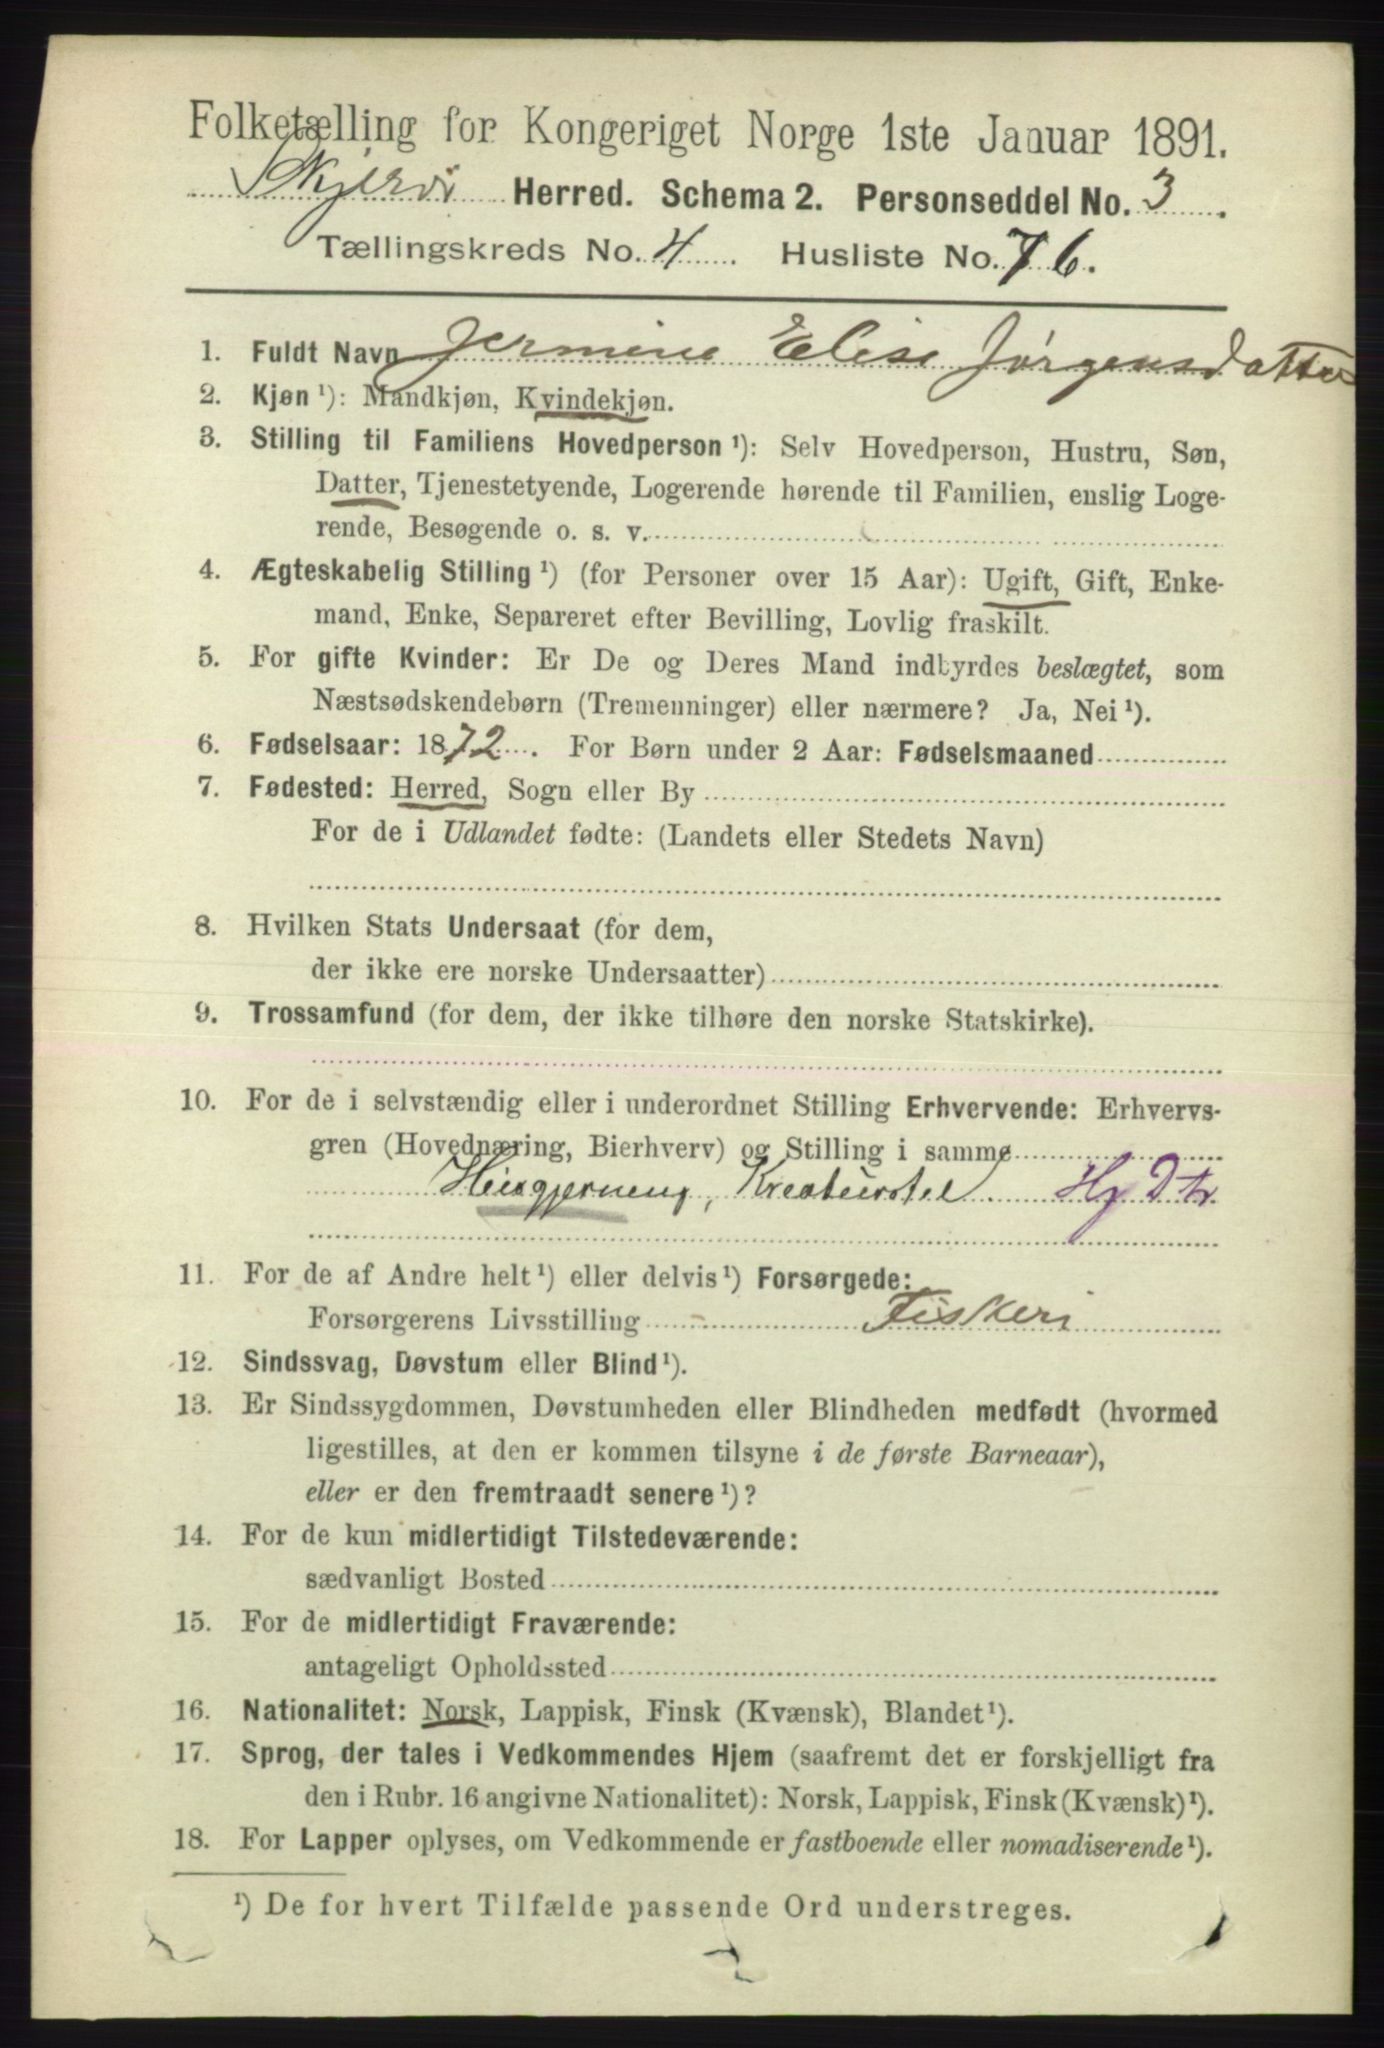 Folketælling for Kongeriget Norge 1ste Januar 1891.
Skjervø Herred. Schema 2. Personseddel No. 3.
Tællingskreds No. 4. Husliste No. 76.
1. Fuldt Navn Jermine Elise Jørgensdatter
2. Kjøn ¹): Mandkjøn, Kvindekjøn.
3. Stilling til Familiens Hovedperson ¹): Selv Hovedperson, Hustru, Søn,
Datter, Tjenestetyende, Logerende hørende til Familien, enslig Loge-
rende, Besøgende o. s. v.
4. Ægteskabelig Stilling ¹) (for Personer over 15 Aar): Ugift, Gift, Enke-
mand, Enke, Separeret efter Bevilling, Lovlig fraskilt.
5. For gifte Kvinder: Er De og Deres Mand indbyrdes beslægtet, som
Næstsødskendebørn (Tremenninger) eller nærmere? Ja, Nei ¹).
6. Fødselsaar: 1872. For Børn under 2 Aar: Fødselsmaaned
7. Fødested: Herred, Sogn eller By
For de i Udlandet fødte: (Landets eller Stedets Navn)
8. Hvilken Stats Undersaat (for dem,
der ikke ere norske Undersaatter)
9. Trossamfund (for dem, der ikke tilhøre den norske Statskirke).
10. For de i selvstændig eller i underordnet Stilling Erhvervende: Erhvervs-
gren (Hovednæring, Bierhverv) og Stilling i samme
Husgjerning, Kreaturstel Hg Dtr.
11. For de af Andre helt ¹) eller delvis ¹) Forsørgede:
Forsørgerens Livsstilling Fiskeri
12. Sindssvag, Døvstum eller Blind ¹).
13. Er Sindssygdommen, Døvstumheden eller Blindheden medfødt (hvormed
ligestilles, at den er kommen tilsyne i de første Barneaar),
eller er den fremtraadt senere ¹)?
14. For de kun midlertidigt Tilstedeværende:
sædvanligt Bosted
15. For de midlertidigt Fraværende:
antageligt Opholdssted
16. Nationalitet: Norsk, Lappisk, Finsk (Kvænsk), Blandet ¹).
17. Sprog, der tales i Vedkommendes Hjem (saafremt det er forskjelligt fra
den i Rubr. 16 angivne Nationalitet): Norsk, Lappisk, Finsk (Kvænsk) ¹).
18. For Lapper oplyses, om Vedkommende er fastboende eller nomadiserende ¹).
¹) De for hvert Tilfælde passende Ord understreges.